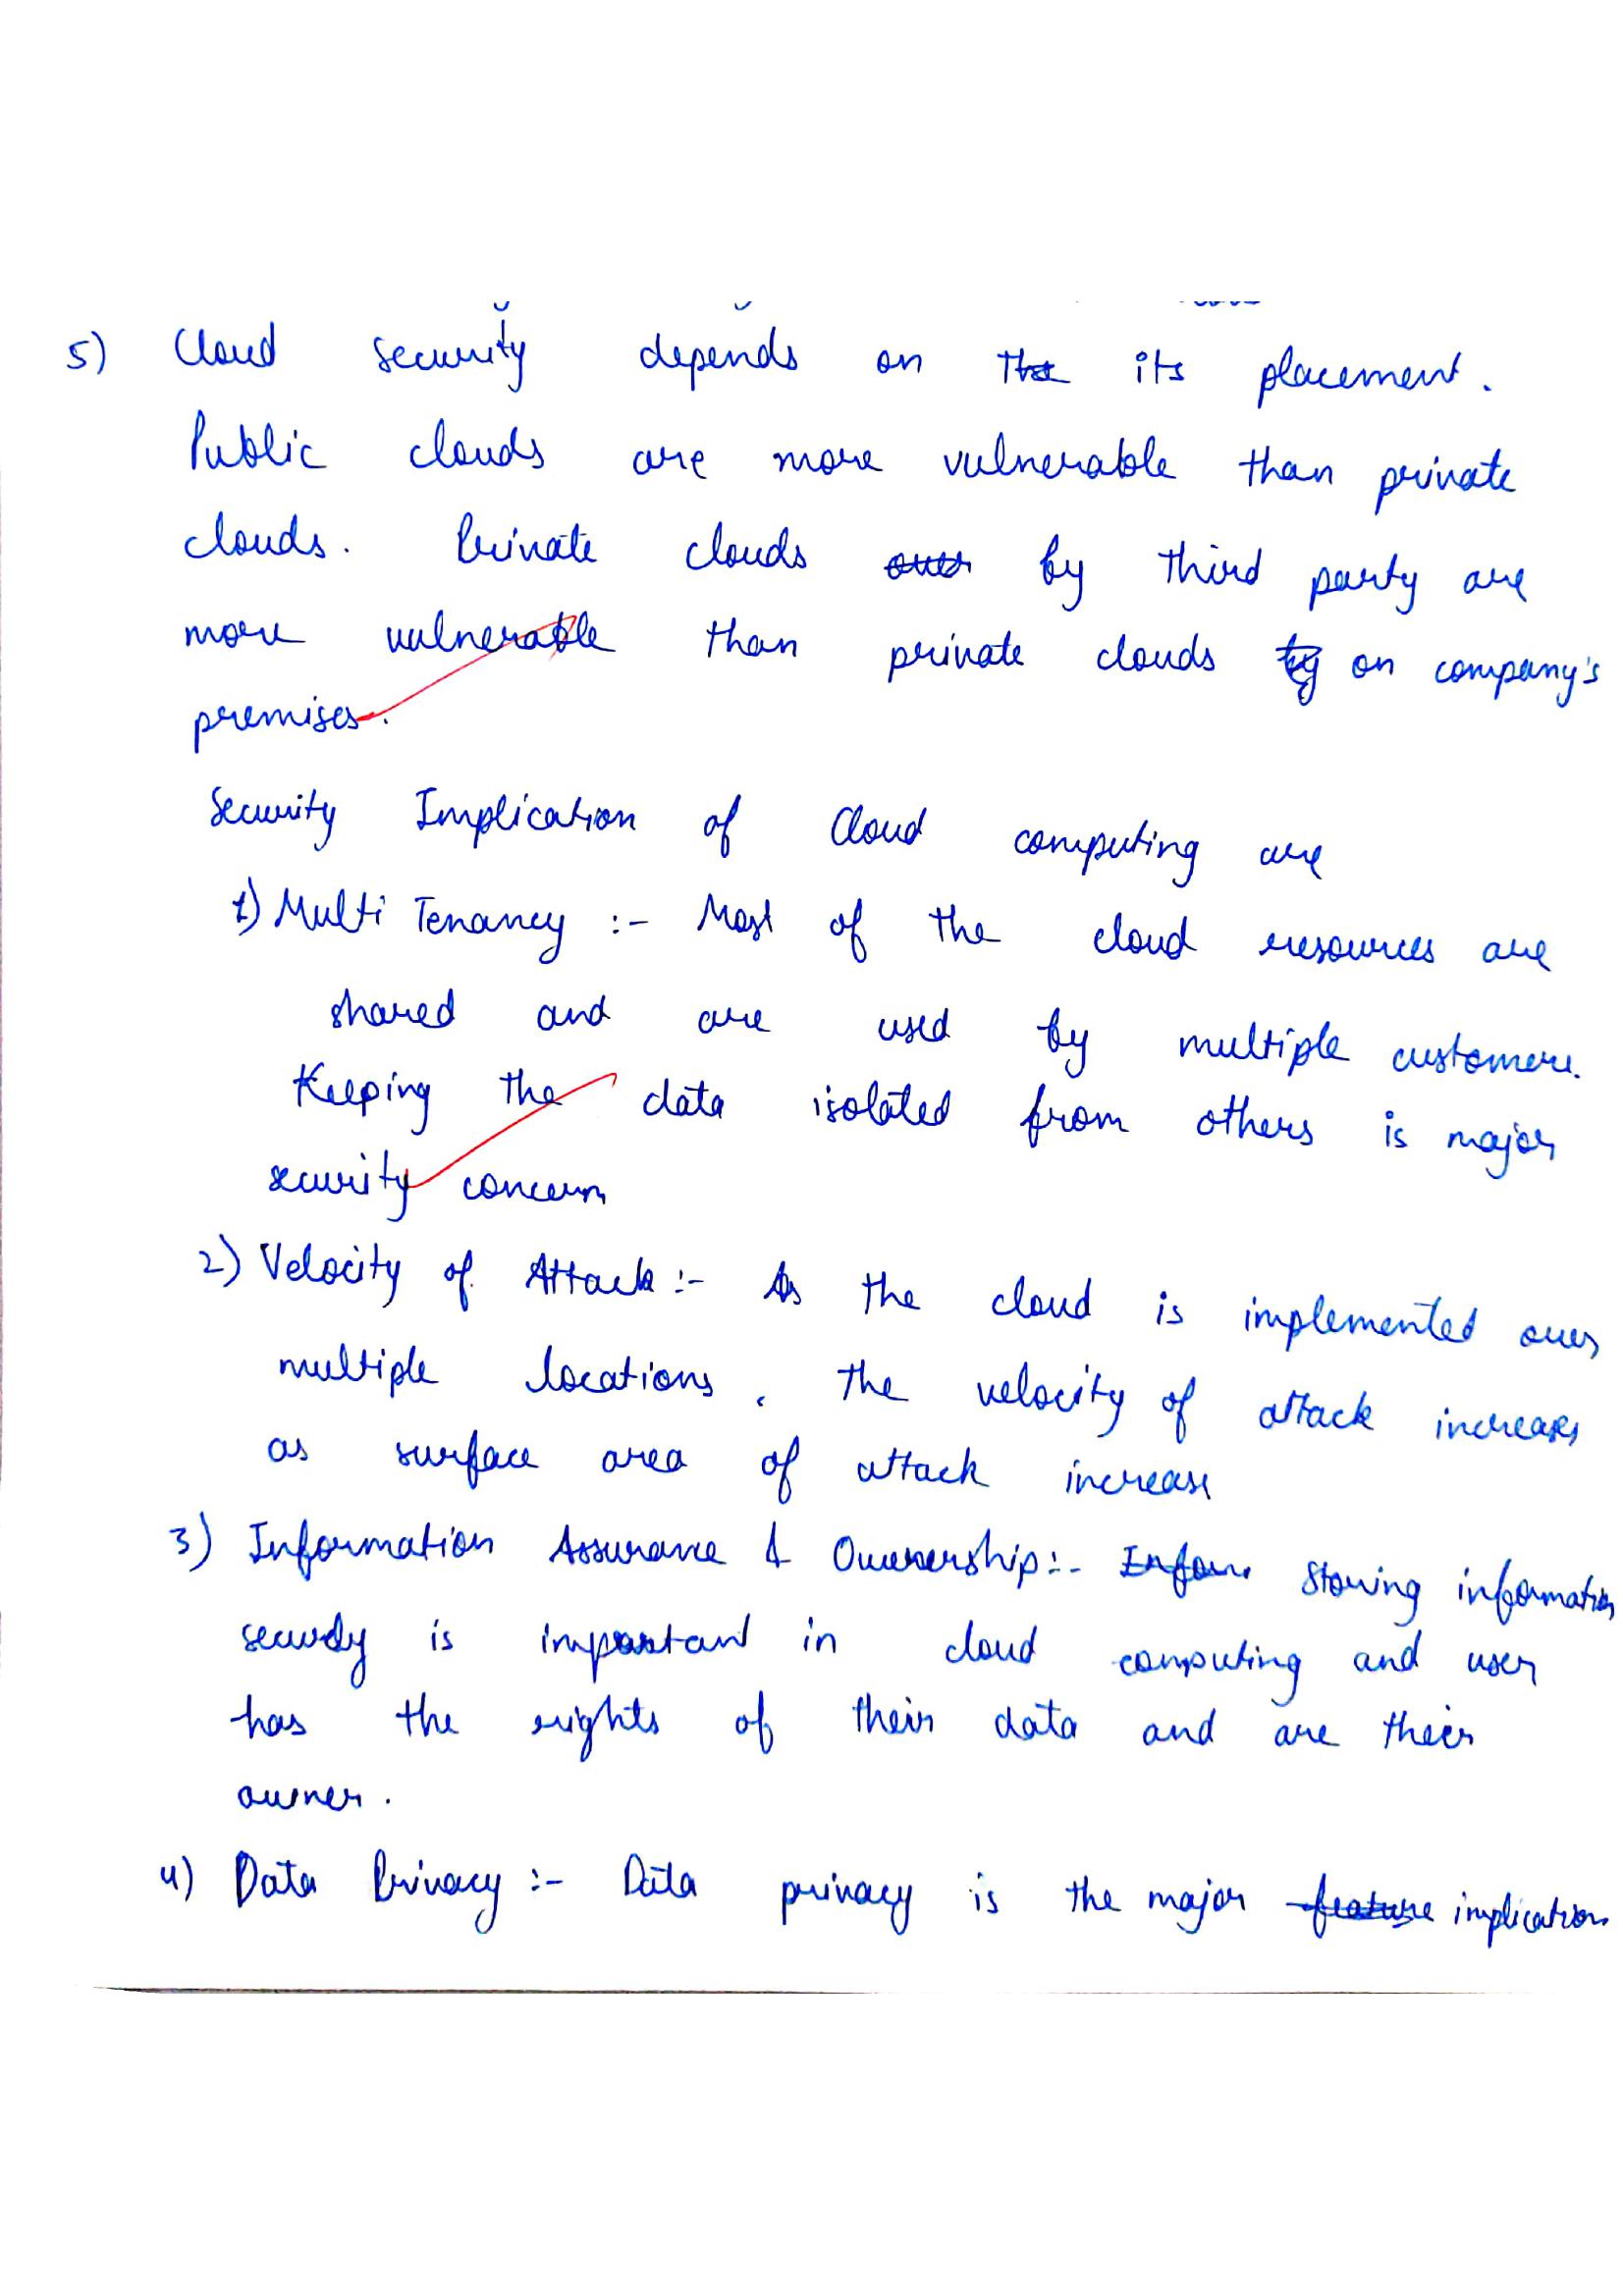 5) Cloud security depends on the its placement.
Public clouds are more vulnerable than private
clouds. Private clouds by third party are
more vulnerable than private clouds by on company's
premises.
Security Implication of Cloud computing are
1) Multi Tenancy :- Most of the cloud resources are
shared and are used by multiple customers.
Keeping the data isolated from others is major
security concern
2) Velocity of Attack :- As the cloud is implemented over
multiple locations, the velocity of attack increases
as surface area of attack increase
3) Information Assurance & Ownership :- Infor. Storing information
securely is important in cloud computing and user
has the rights of their data and are their
owner.
4) Data Privacy :- Data privacy is the major feature implication